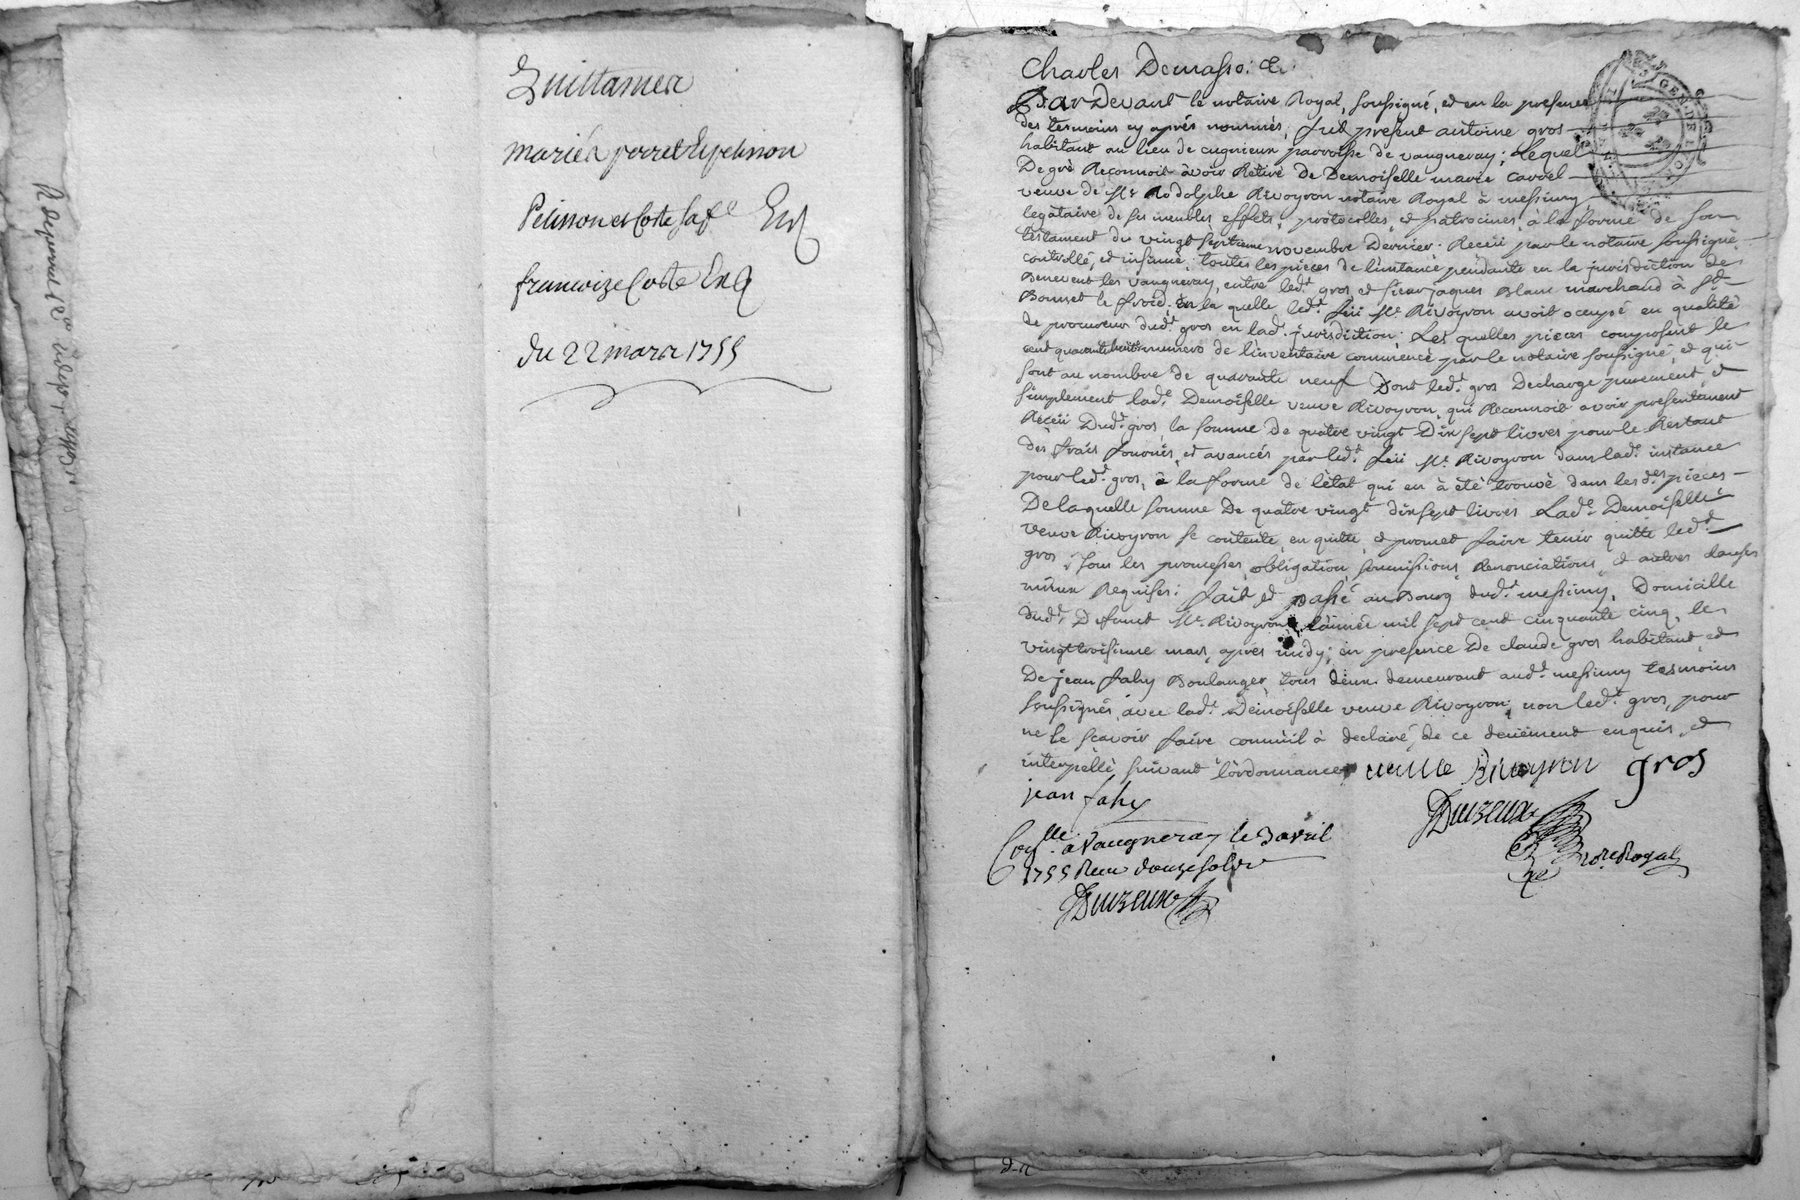 Quittance
marie perret Pelisson
Pelisson et Coste sa fe
francoize Coste
du 22 mars 1755
Charles Demasso: &
Pardevant le notaire Royal, soussigné, et en la presence
des tesmoins cy après nommés, fut présent antoine gros
habitant au lieu de cugnieux parroisse de vaugneray; Lequel
De gré Reconnoit avoir Retiré de Demoiselle marie carrel
veuve de Mr Rodolphe Rivoyron notaire Royal à messimy
legataire de ses meubles, effets, protocolles, et patrocines, à la forme de son
testament du vingt septieme novembre Dernier. Receü par le notaire soussigné
controllé, et insinué; toutes les pieces de l'instance pendante en la jurisdiction de
Benevent les vaugneray, entre led. gros et sieur jaques Blanc marchand à St
Bonnet le froid; en la quelle led. feü Me. Rivoyron avoit occupé en qualité
de procureur dud. gros en lad. jurisdiction; Les quelles pieces composent le
cent quarante huit numero de l'inventaire commencé par le notaire soussigné, et qui
sont au nombre de quarante neuf Dont led. gros Decharge purement, et
simplement lad. Demoiselle veuve Rivoyron, qui Reconnoit avoir presentement
Receü Dud. gros la somme de quatre vingt Dix sept livres pour le Restant
des frais fournis, et avancés par led. feü Me. Rivoyron dans lad. instance
pour led. gros, à la forme de l'état qui en à été trouvé dans lesd. pieces
De laquelle somme De quatre vingt dix sept livres Lad. Demoiselle
veuve Rivoyron se contente, en quitte, et promet faire tenir quitte led.
gros; sous les promesses, obligation, soumissions, Renonciations, et autres clauses
mieux Requises: fait et passé au Bourg dud. messimy, Domicille
dud. Defunt Me. Rivoyron, l'année mil sept cent cinquante cinq, le
vingt troisieme mars, après midy; en presence De claude gros habitant, et
De jean fahy Boulanger, tous deux demeurant aud. messimy tesmoins
soussignés, avec lad. Demoiselle veuve Rivoyron; non led. gros, pour
ne le scavoir faire comme il à declaré, de ce deüement enquis, et
interpellé suivant l'ordonnance veuve Rivoyron gros
jean fahy
Dulzeux
Conlle. à Vaugneray le 3 avril
nore Royal
1755 Recu douze sols
Dulzeux